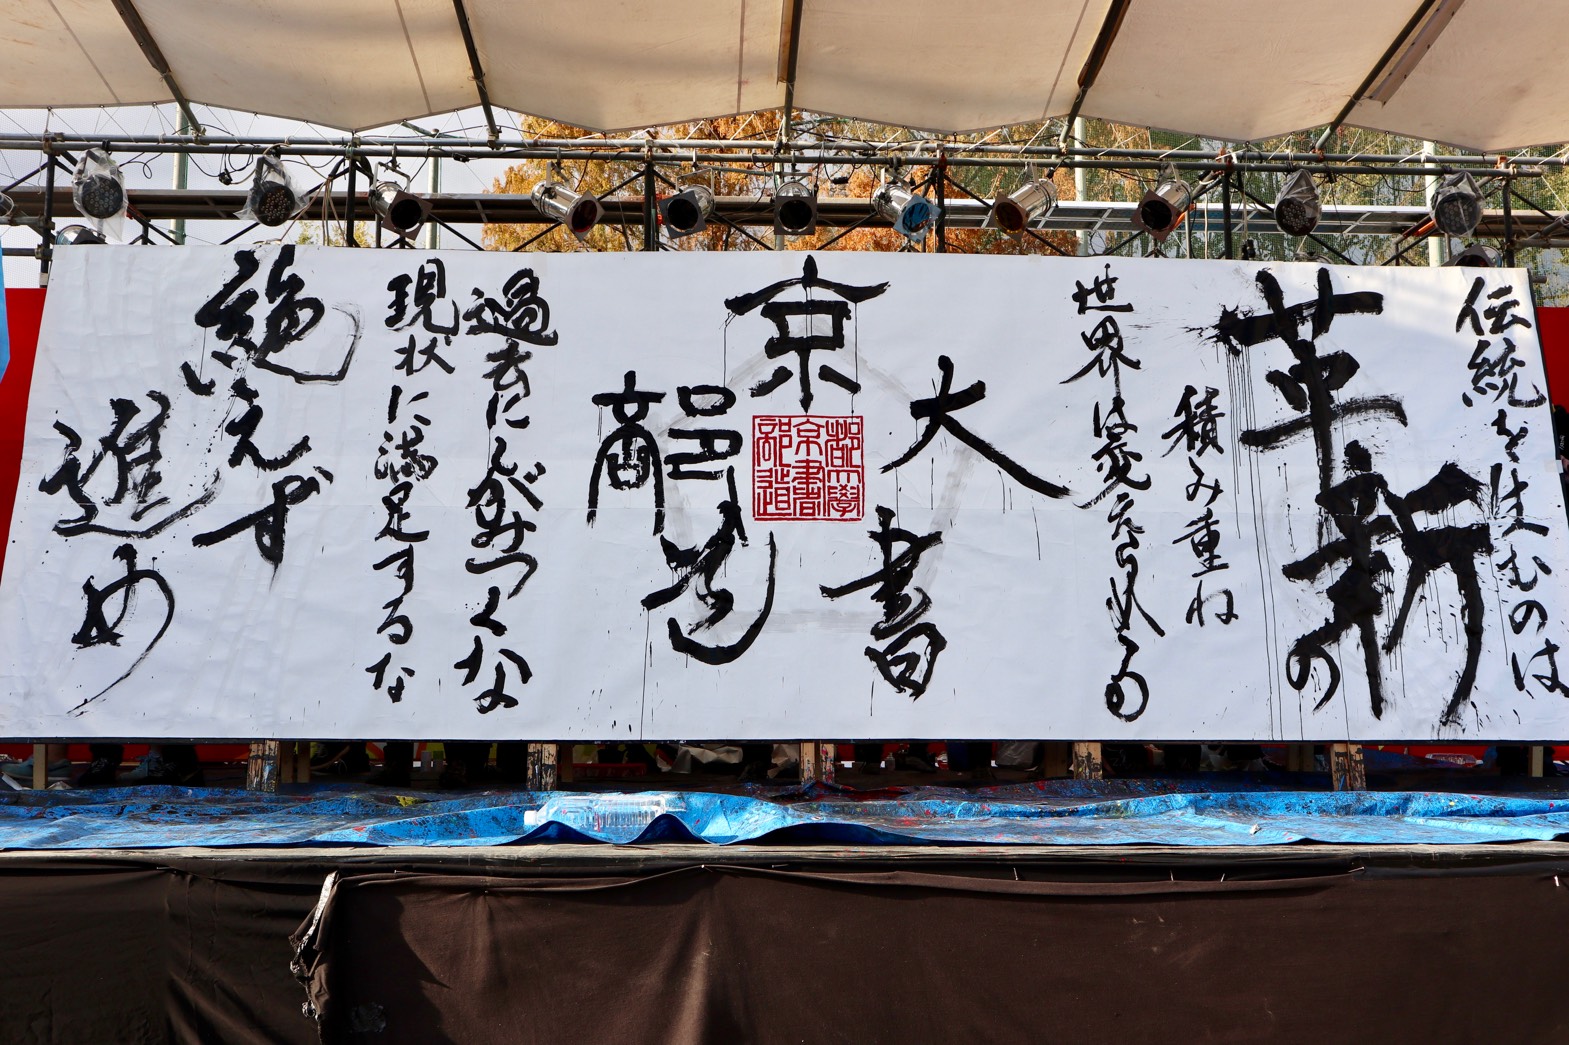 伝統を生むのは
革新の
積み重ね
世界は変えられる
京
大
書
道
部
都大學
京書
部道
過去にしがみつくな
現状に満足するな
絶えず
進め